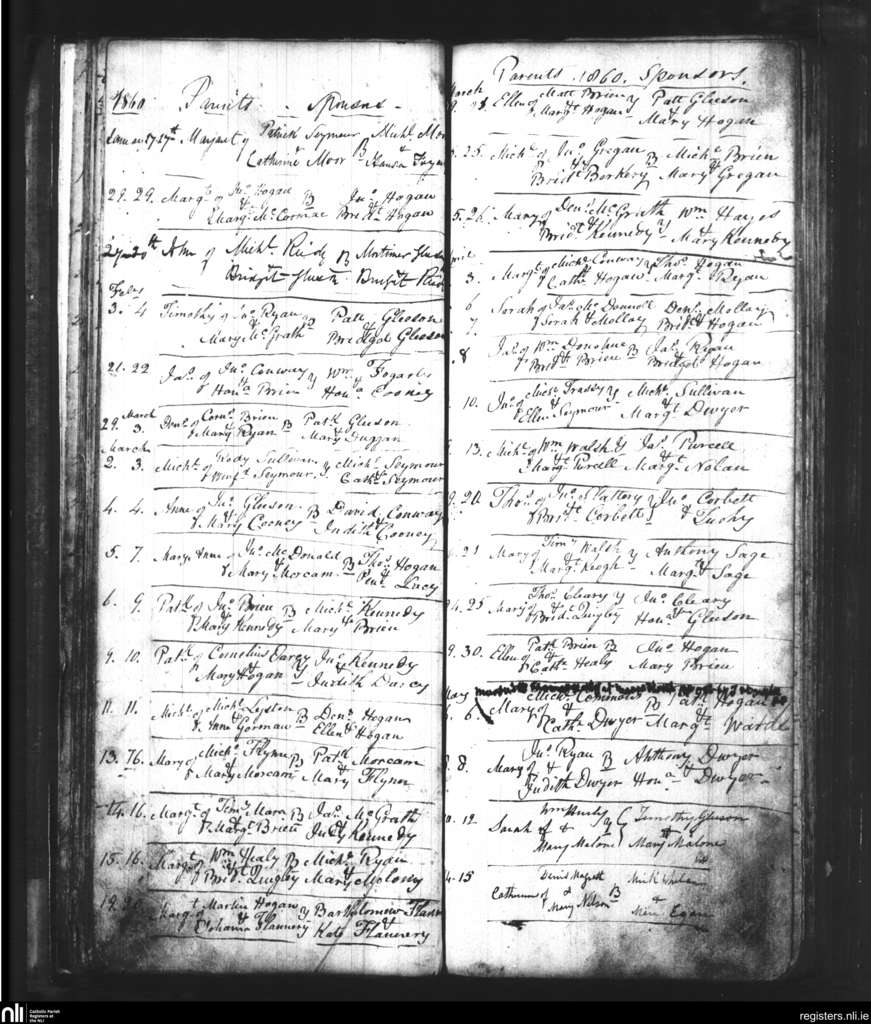 1860 Parents - Sponsors -
17. 17th Margaret of Patrick Seymour B Michl.
Catherine Moor
29. 29. Margt. of Jno. Hogan B Jno. Hogan
& Margt. McCormac Bridt. Hogan
of Michl. B Mortimer
Bridget Bridget
Feby
3. 4 Timothy of Jno. Ryan Patt Gleeson
Mary McGrath Bridget Gleeson
21. 22 Jas. of Jno. Conway y Wm. Fogarty
& Hona. Brien Hona. Cooney
March
29. 3. Denl. of Corns. Brien B Patk. Gleeson
& Mary Ryan Mary Duggan
March
2. 3. Michl. of Rody Sullivan y Michl. Seymour
& Bridt. Seymour Cathe. Seymour
4. 4. Anne of Jno. Gleeson B David Conway
& Mary Cooney Judith Cooney
5. 7. Mary Anne of Jno. McDonald B Thos. Hogan
& Mary Morcam Lacy
6. 9. Patk. of Jno. Brien B Michl. Kennedy
& Mary Kennedy Mary Brien
9. 10. Patk. of Cornelius Darcy y Jno. Kennedy
& Mary Hogan Judith Darcy
11. 11. Michl. of Michl. B Denl. Hogan
& Anne Gorman Ellen Hogan
13. 16. Mary of Michl. Flynn B Patk. Morcam
& Mary Morcam Mary Flynn
14. 16. Margt. of Timy. Mara B Jas. McGrath
& Margt. Brien Kennedy
15. 16. Margt. of Wm. Healy B Michl. Ryan
& Bridt. Quigley Mary Molony
19. Margt. of Martin Hogan y Bartholomew
& Johanna Flannery Kate Flannery
Parents 1860. Sponsors.
March
Ellen of Matt Brien y Patt Gleeson
& Margt. Hogan Mary Hogan
25. Michl. of Jno. Gregan B Michl. Brien
Bridt. Berkery Mary Gregan
5. 26. Mary of Denl. McGrath Wm. Hayes
Bridt. Kennedy y Mary Kennedy
3. Margt. of Michl. Conway Thos. Hogan
& Cathe. Hogan Margt. Ryan
6 Sarah of Jas. McDonnell Denl. Molloy
7. & Sarah Molloy Bridt. Hogan
8 Jas. of Wm. Donohue B Jas. Ryan
& Bridt. Brien Bridget Hogan
10. Jno. of Michl. Trassy y Michl. Sullivan
& Ellen Seymour Margt. Dwyer
13. Michl. of Wm. Walsh y Jas. Purcell
& Margt. Purcell Margt. Nolan
20. Thos. of Jno. Slattery y Jno. Corbett
& Bridt. Corbett
21 Mary of Timy. Walsh y Anthony Sage
& Margt. Keogh Margt. Sage
24. 25 Mary of Thos. Cleary y Jno. Cleary
& Bridt. Quigley Hona. Gleeson
9. 30. Ellen of Patk. Brien B Jno. Hogan
& Cathe. Healy Mary Brien
May
6. Mary of Michl. Commons B Patk. Hogan
& Cathe. Dwyer Margt. Warde
8. Mary of Jno. Ryan B Anthony Dwyer
& Judith Dwyer Hona. Dwyer
12 Sarah of & y Timothy Gleeson
Mary Malone Mary Malone
15 Denis
Catherine of & B
Mary Nelson Egan
nli Catholic Parish
Registers at
the NLI
registers.nli.ie